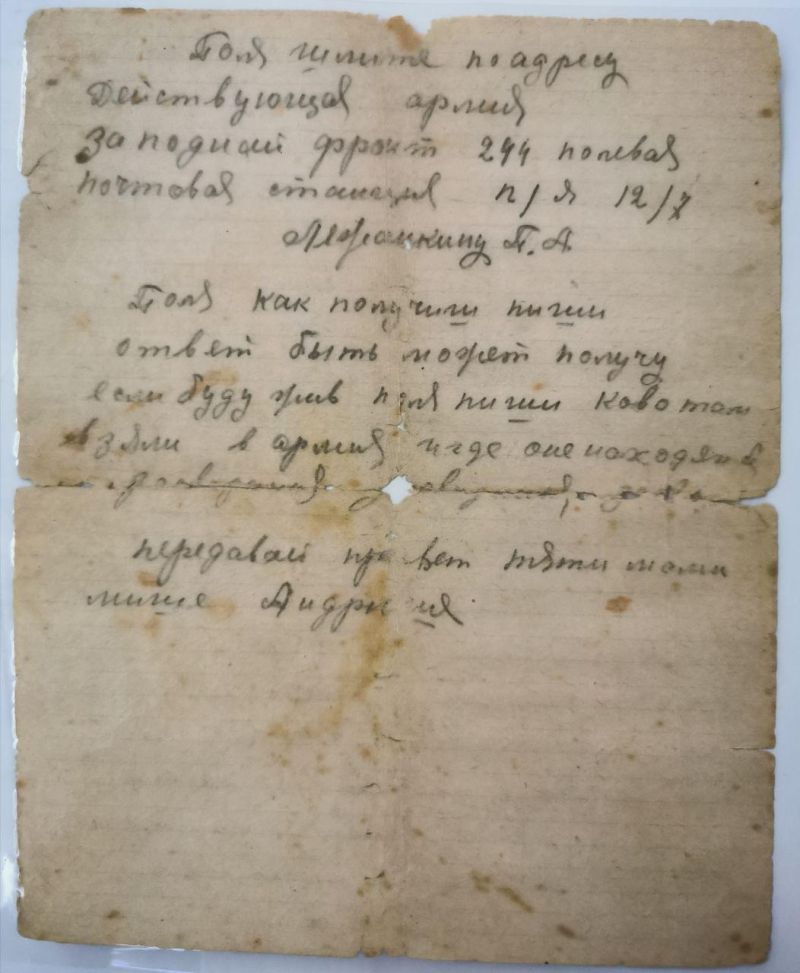 Поля шлите по адресу
Действующая армия
Западнай фронт 244 полевая
почтовая станция п/я 12/7
Лежанкину П.А
Поля как получиш пиши
ответ быть может получу
если буду жив поля пиши ково там
взяли в армия и где оне находятся
передавай привет тяти мами
мише